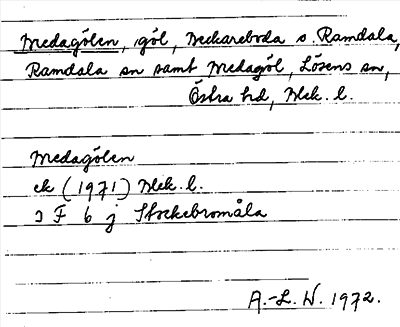 Medagölen, göl, Neckareboda s. Ramdala,
Ramdala sn samt Medagöl, Lösens sn,
Östra hd, Blek. l.
Medagölen
ek (1971) Blek. l.
3 F 6 j Stockebromåla
A.-L. W. 1972.